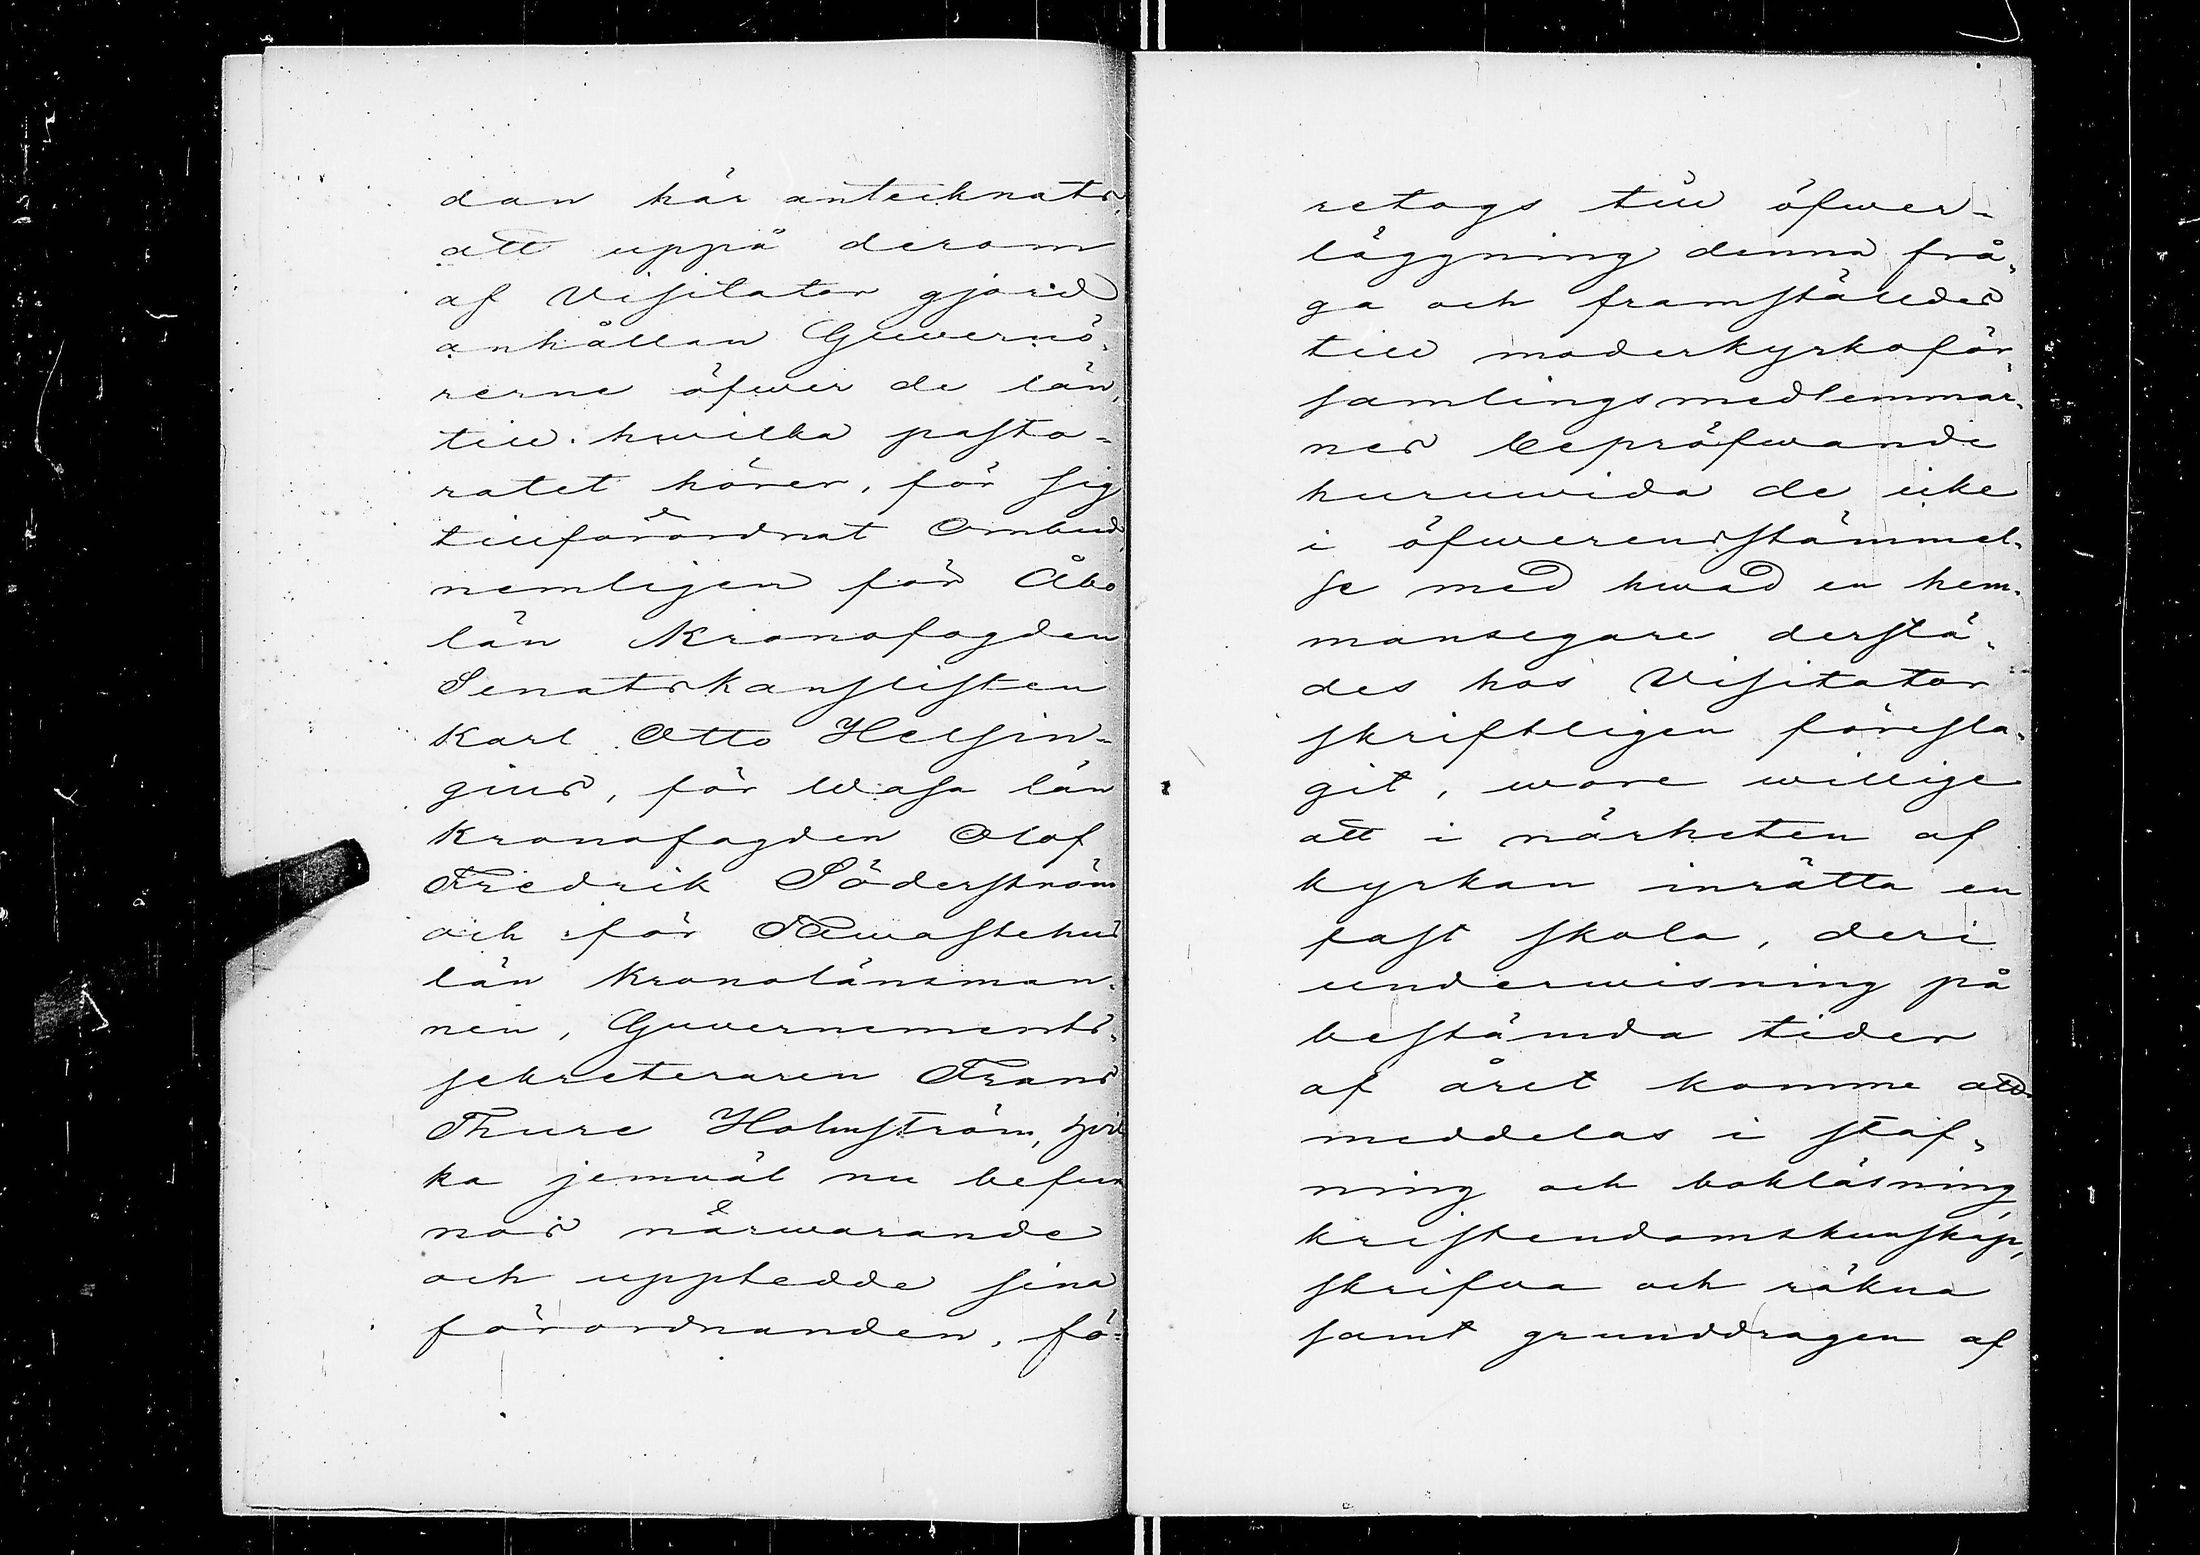 dan här antecknats,
att uppå derom
af Visitator gjord
anhållan Guvernö-
rerne öfwer de län,
till hwilka pasto-
ratet hörer, för sig
tillförordnat Ombud,
nemligen för Åbo
län Kronofogden
Senatskanslisten
Karl Otto Helsin-
gius, för Wasa län
Kronofogden Olof
Fredrik Söderström
och för Tawastehus
län Kronolänsman-
nen, Guvernements-
sekreteraren Frans
Thure Holmström, hvil-
ka jemväl nu befun-
nos närwarande
och upptedde sina
förordnanden, fö-
retogs till öfwer-
läggning denna frå-
ga och framställdes
till moderkyrkoför-
samlingsmedlemmar-
nes bepröfwande
huruwida de icke
i öfwerensstämmel-
se med hwad en hem-
mansegare derstä-
des hos Visitator
skriftligen föresla-
git, wore willige
att i närheten af
kyrkan inrätta en
fast skola, deri
underwisning på
bestämda tider
af året komme att
meddelas i staf-
ning och bokläsning,
kristendomskunskap,
skrifwa och räkna
samt grunddragen af